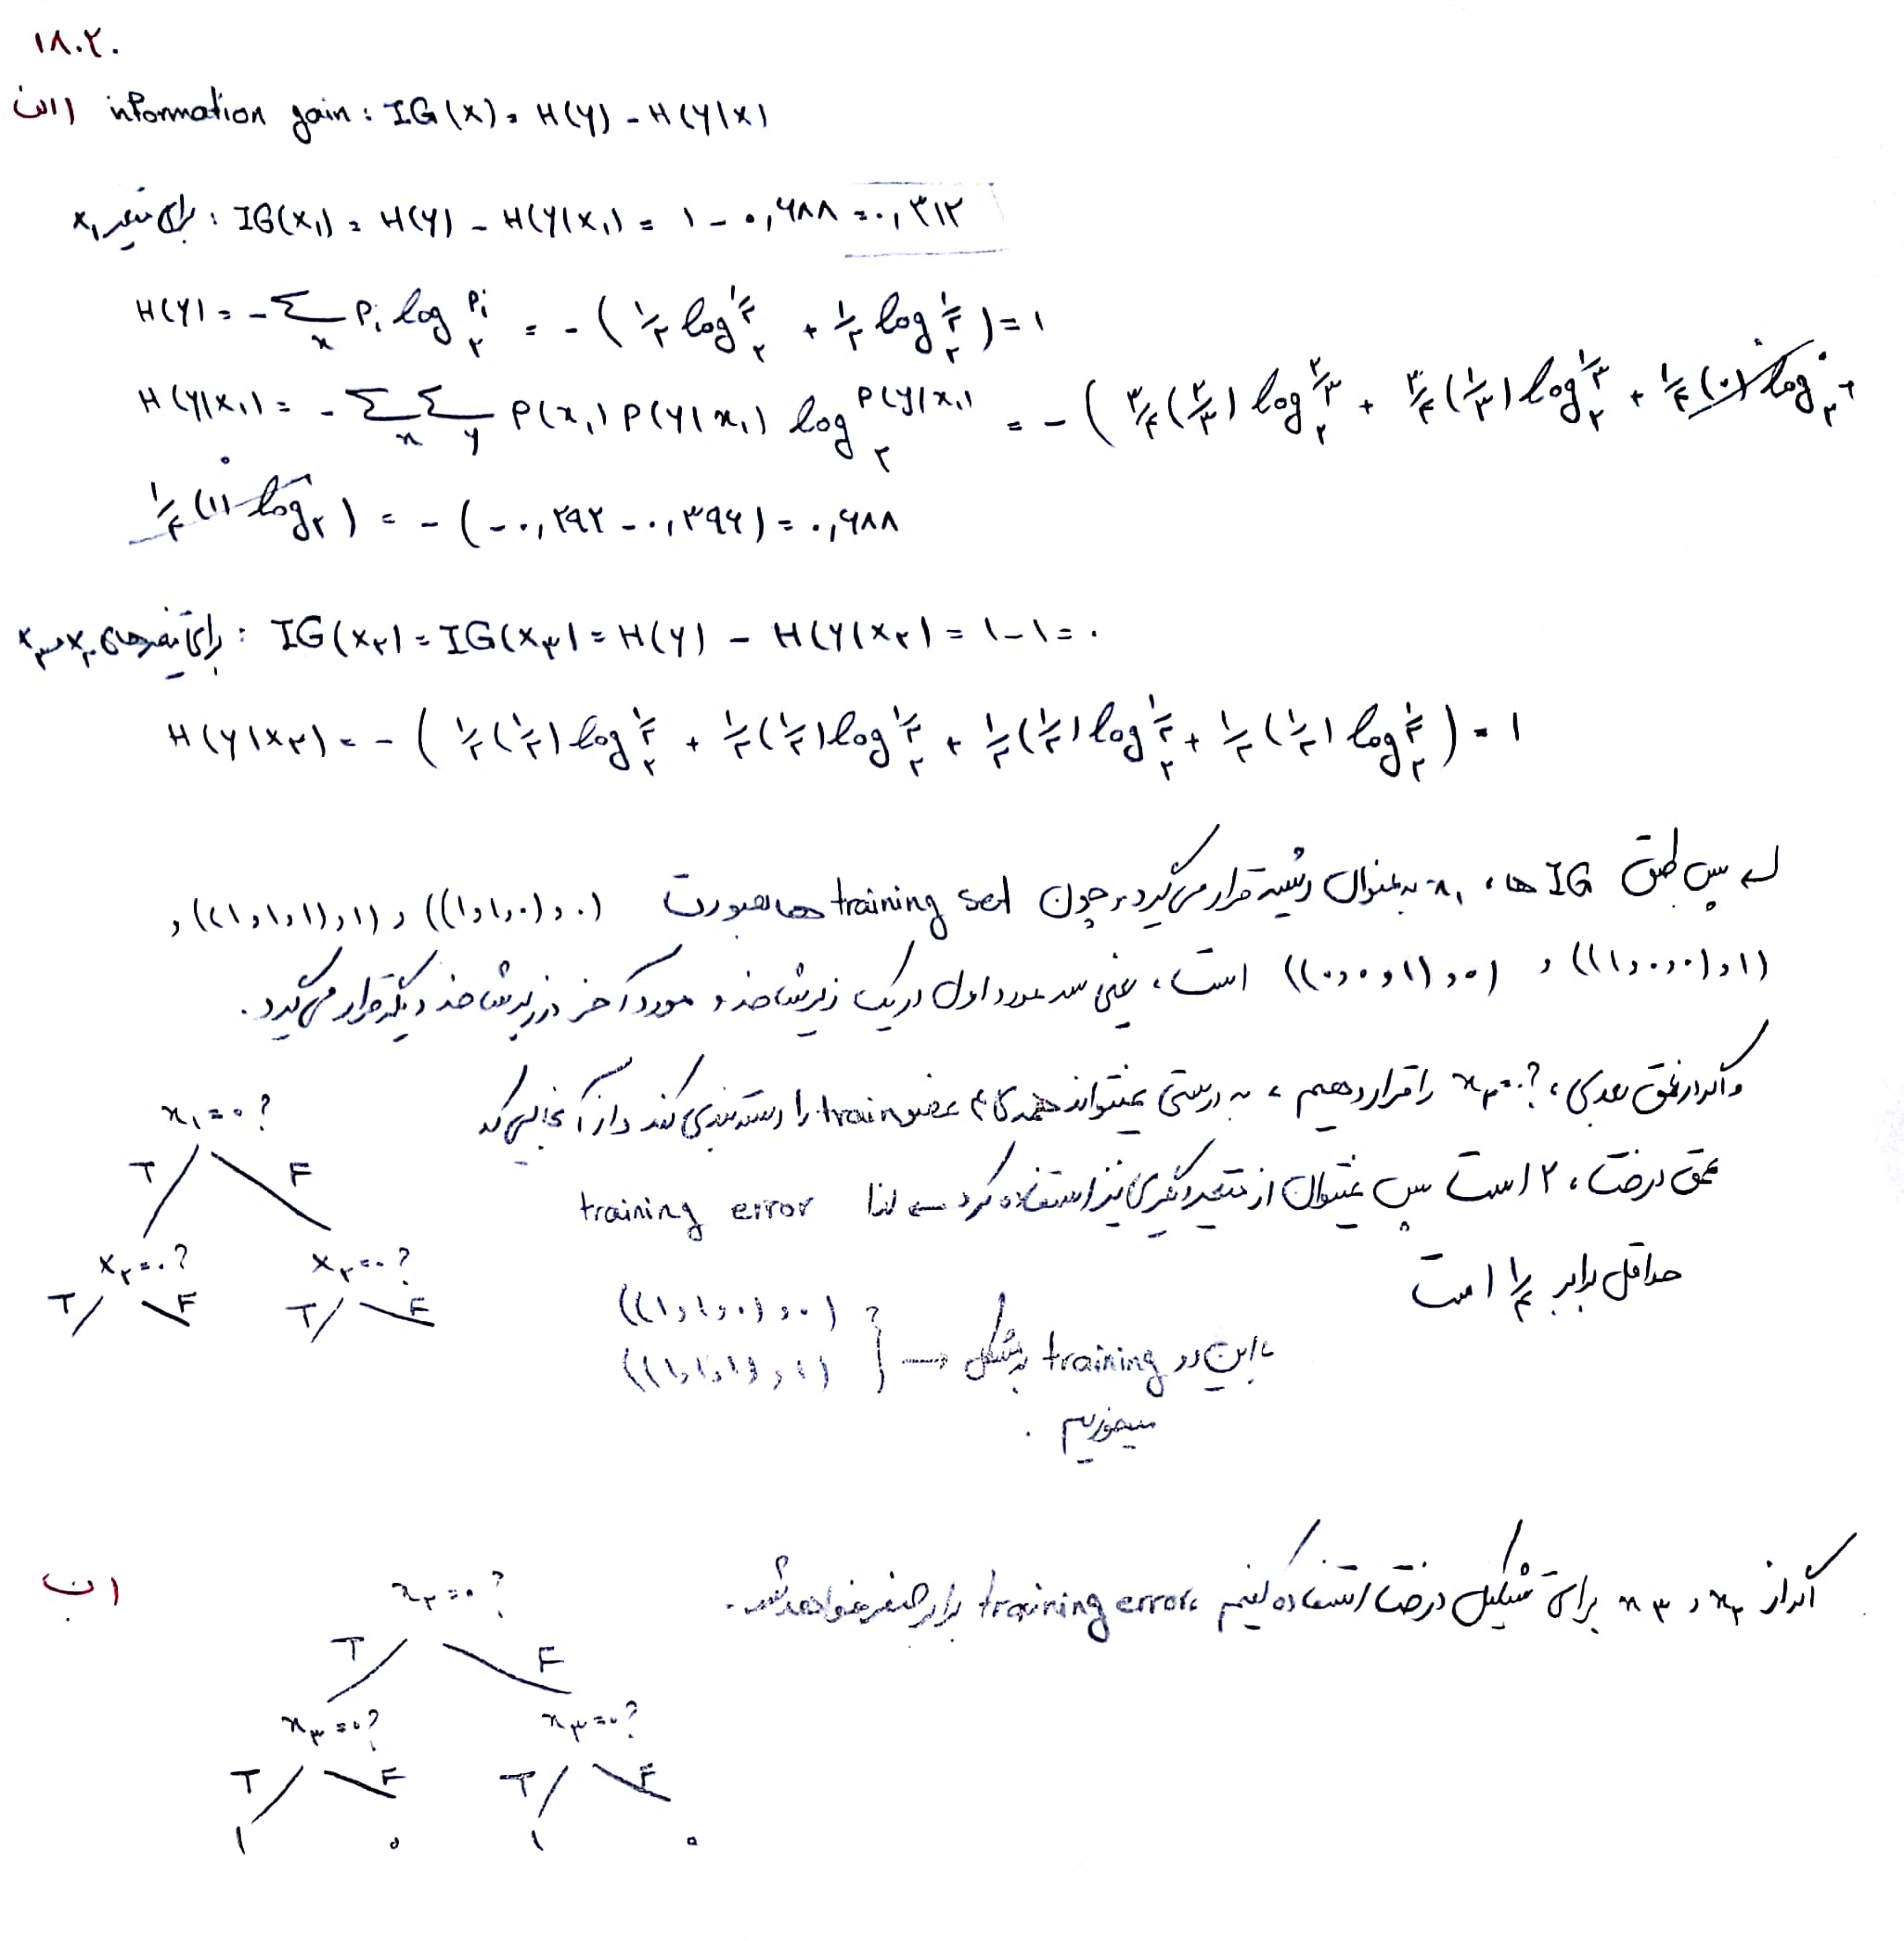 ۱۸.۲.
الف) information gain: IG(X) = H(Y) - H(Y|X)
برای متغیر x₁: IG(x₁) = H(Y) - H(Y|x₁) = ۱ - ۰,۶۸۸ = ۰,۳۱۲
H(Y) = -∑ₓ Pᵢ log₂ Pᵢ = -(½ log₂ ½ + ½ log₂ ½) = ۱
H(Y|x₁) = -∑ₓ∑ᵧ P(x₁) P(y|x₁) log₂ P(y|x₁) = -(۳/۴ (۲/۳) log₂ ۲/۳ + ۳/۴ (۱/۳) log₂ ۱/۳ + ۱/۴ (۰) log₂ ۰ +
۱/۴ (۱) log₂) = -(-۰,۲۹۲ - ۰,۳۹۶) = ۰,۶۸۸
برای متغیرهای x₂ و x₃: IG(x₂) = IG(x₃) = H(Y) - H(Y|x₂) = ۱ - ۱ = ۰
H(Y|x₂) = -(½ (½) log₂ ½ + ½ (½) log₂ ½ + ½ (½) log₂ ½ + ½ (½) log₂ ½) = ۱
پس طبق IG ها، x₁ به عنوان ریشه قرار می‌گیرد و چون training set ها بصورت ((۱,۱,۰),۰) و ((۱,۱,۱),۱) و
((۱,۰,۰),۱) و ((۰,۰,۱),۰) است، یعنی سه مورد اول در یک زیرشاخه و مورد آخر در زیرشاخه دیگر قرار می‌گیرد.
و اگر در عمق بعدی، x₂=۰? را قرار دهیم، به درستی نمیتواند همه‌ی train را دسته‌بندی کند و از آنجایی که
عمق درخت، ۲ است پس نمیتوان از متغیر دیگری نیز استفاده کرد ← لذا training error
حداقل برابر ۱/۴ است
x₁=۰?
T F
x₂=۰? x₂=۰?
T F T F
((۱,۱,۰),۰)
((۱,۱,۱),۱)
} → با این دو training به مشکل
میخوریم.
ب)
اگر از x₂ و x₃ برای تشکیل درخت استفاده کنیم، training error برابر صفر خواهد شد.
x₂=۰?
T F
x₃=۰? x₃=۰?
T F T F
۱ ۰ ۱ ۰